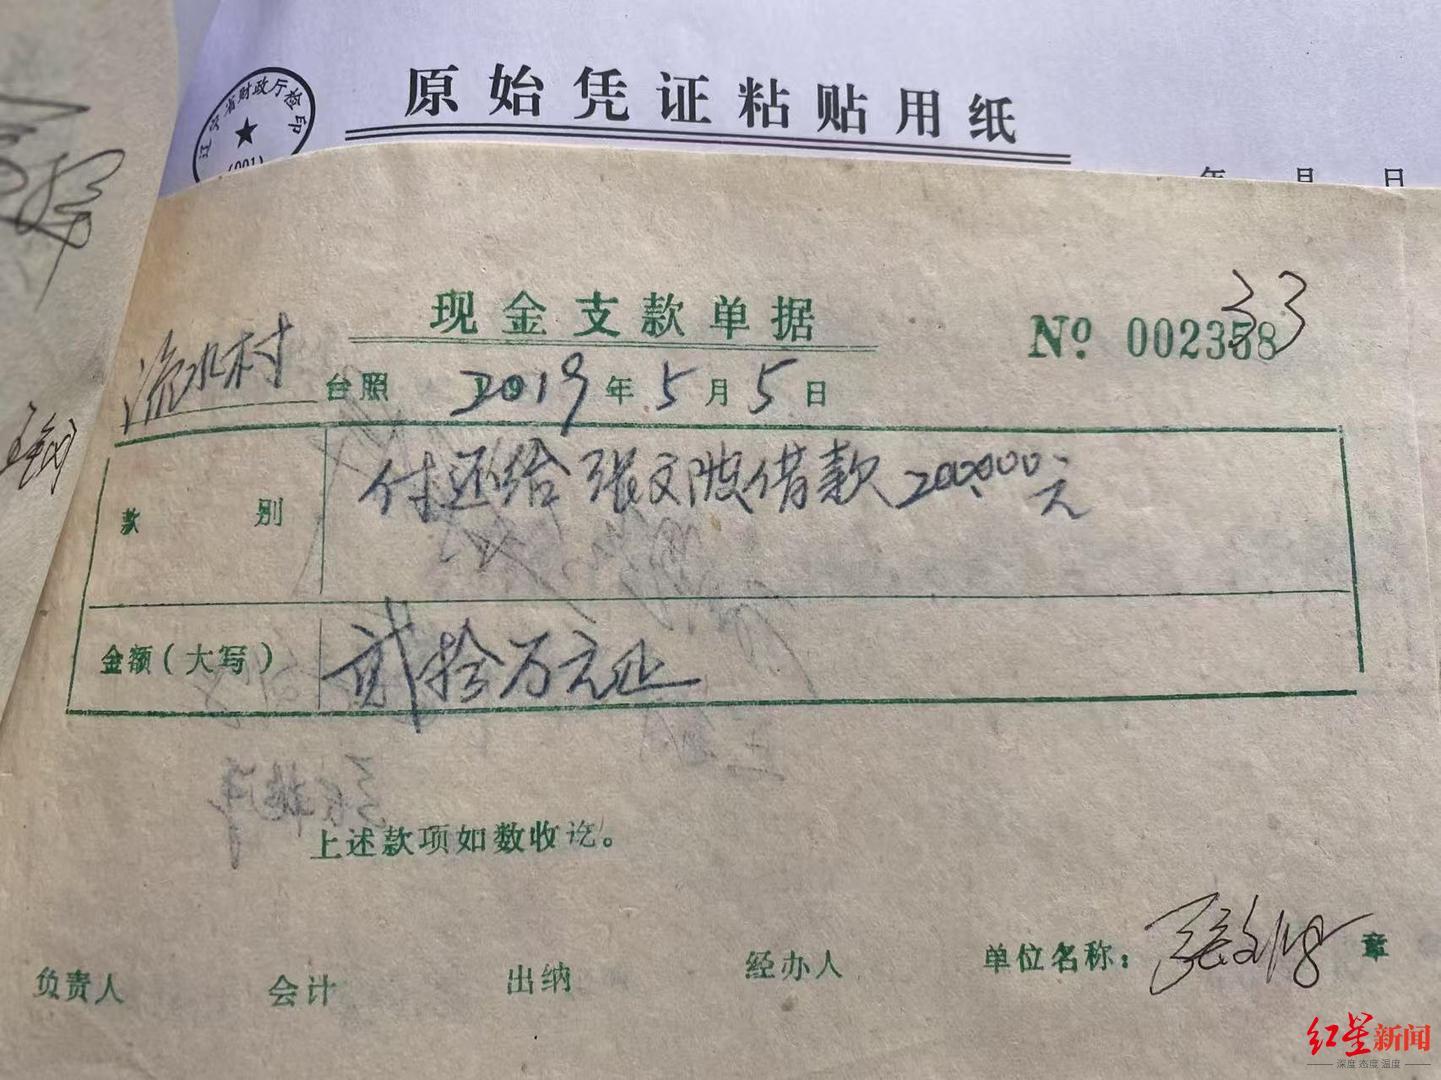 原始凭证粘贴用纸
辽宁省财政厅检印
(001)
年 月 日
现金支款单据
33
№ 002358
流水村 台照 2019年5月5日
款别 付还给张文波借款200000元
金额(大写) 贰拾万元正
上述款项如数收讫。
负责人 会计 出纳 经办人 单位名称: 张文波 章
红星新闻
深度 态度 温度